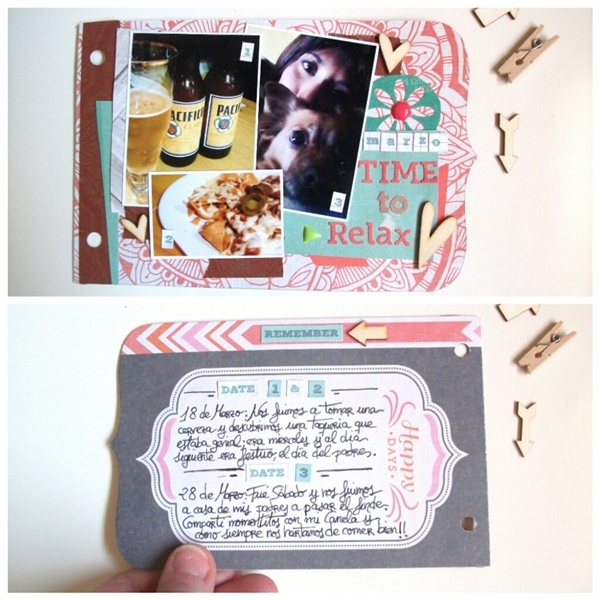 1
PACIFICO
PACIF
2
3
marzo
TIME
to
Relax
REMEMBER
DATE 1 & 2
18 de Marzo: Nos fuimos a tomar una
cerveza y descubrimos una taqueria que
estaba genial; era miercoles y al dia
siguiente era festivo, el día del padre.
DATE 3
28 de Marzo: Fué Sábado y nos fuimos
a casa de mis padres a pasar el finde.
Compartí momentitos con mi Canela y
como siempre nos hartamos de comer bien!!
Happy
• DAYS •